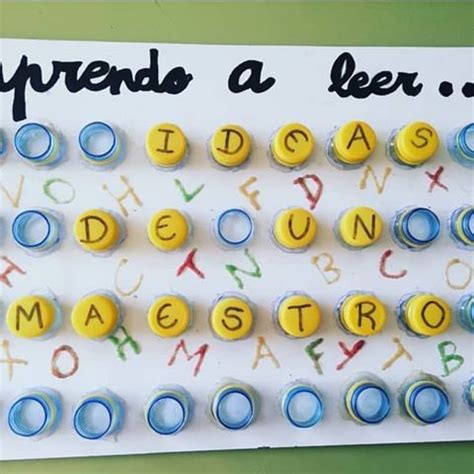 aprendo a leer...
IDEAS
V O H V F D N X
DE UN
T N B C
MAESTRO
O H M A F Y T B